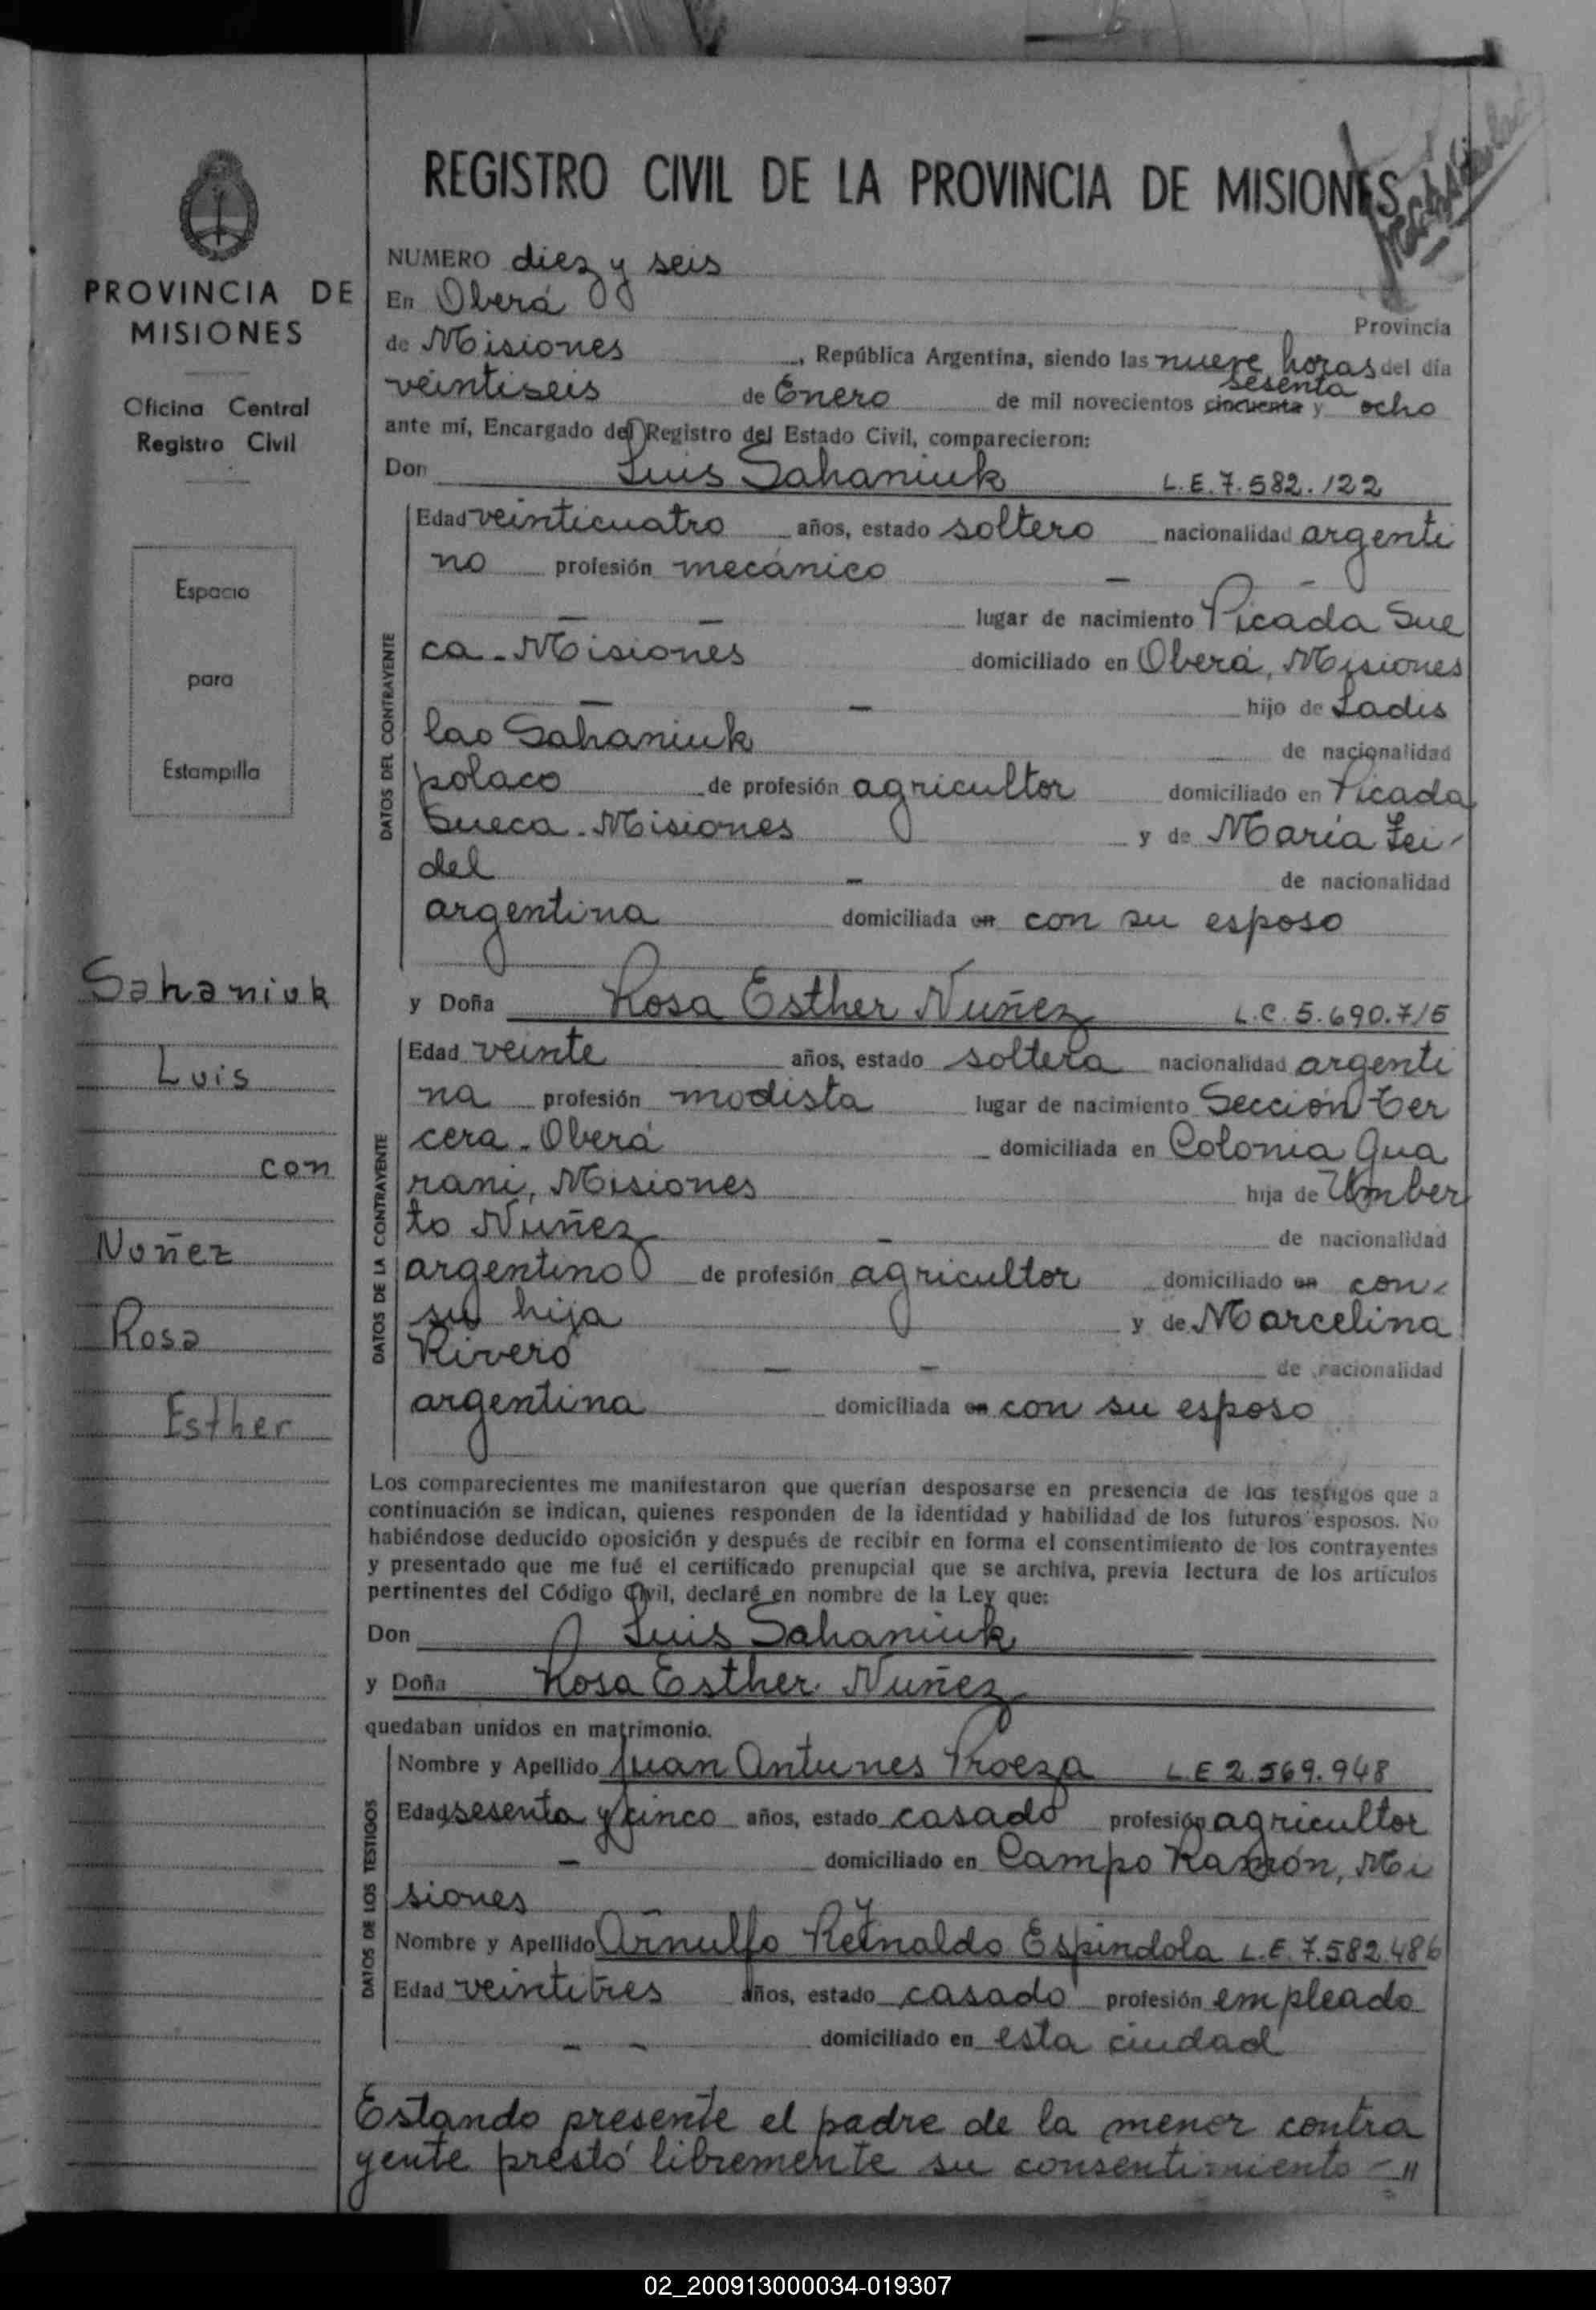 REGISTRO CIVIL DE LA PROVINCIA DE MISIONES
PROVINCIA DE
MISIONES
Oficina Central
Registro Civil
Espacio
para
Estampilla
Sahaniuk
Luis
con
Nuñez
Rosa
Esther
NUMERO diez y seis
En Oberá
Provincia
de Misiones, República Argentina, siendo las nueve horas del día
sesenta
veintiseis de Enero de mil novecientos cincuenta y ocho
ante mí, Encargado del Registro del Estado Civil, comparecieron:
Don Luis Sahaniuk L.E. 7.582.122
DATOS DEL CONTRAYENTE
Edad veinticuatro años, estado soltero nacionalidad argenti
no profesión mecánico -
- - lugar de nacimiento Picada Sue
ca - Misiones domiciliado en Oberá, Misiones
- - hijo de Ladis
lao Sahaniuk de nacionalidad
polaco de profesión agricultor domiciliado en Picada
Sueca - Misiones y de María Lei-
del - de nacionalidad
argentina domiciliada en con su esposo
y Doña Rosa Esther Nuñez L.C. 5.690.715
DATOS DE LA CONTRAYENTE
Edad veinte años, estado soltera nacionalidad argenti
na profesión modista lugar de nacimiento Sección Ter
cera - Oberá domiciliada en Colonia Gua
rani, Misiones hija de Umber
to Nuñez - de nacionalidad
argentino de profesión agricultor domiciliado en con
su hija y de Marcelina
Rivero - - de nacionalidad
argentina domiciliada en con su esposo
Los comparecientes me manifestaron que querían desposarse en presencia de los testigos que a
continuación se indican, quienes responden de la identidad y habilidad de los futuros esposos. No
habiéndose deducido oposición y después de recibir en forma el consentimiento de los contrayentes
y presentado que me fué el certificado prenupcial que se archiva, previa lectura de los artículos
pertinentes del Código Civil, declaré en nombre de la Ley que:
Don Luis Sahaniuk
y Doña Rosa Esther Nuñez
quedaban unidos en matrimonio.
DATOS DE LOS TESTIGOS
Nombre y Apellido Juan Antunes Proeza L.E 2.569.948
Edad sesenta y cinco años, estado casado profesión agricultor
- domiciliado en Campo Ramón, Mi
siones
Nombre y Apellido Arnulfo Reynaldo Espindola L.E. 7.582.486
Edad veintitres años, estado casado profesión empleado
- - domiciliado en esta ciudad
Estando presente el padre de la menor contra
yente prestó libremente su consentimiento -"
02_200913000034-019307